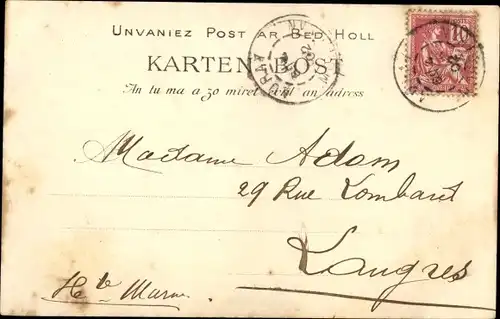 Unvaniez Post ar Bed Holl
KARTEN POST
An tu ma a zo miret evit an adress
10
Madame Adam
29 Rue Lombard
Langres
Hte Marne